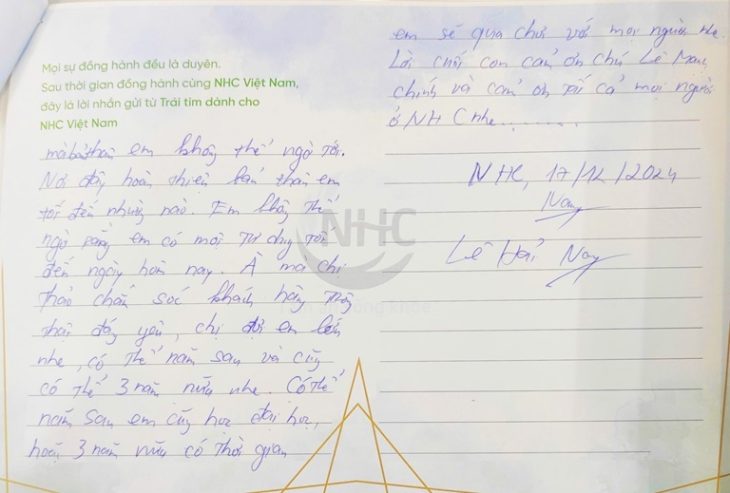 Mọi sự đồng hành đều là duyên.
Sau thời gian đồng hành cùng NHC Việt Nam,
đây là lời nhắn gửi từ Trái tim dành cho
NHC Việt Nam
mà bản thân em không thể ngờ tới.
Nơi đây hoàn thiện bản thân em
tốt đến nhường nào. Em không thể
ngờ rằng em có một tư duy tốt
đến ngày hôm nay. À mà chị
Thảo chăm sóc khách hàng trông
thật đáng yêu, chị đợi em lớn
nhe, có thể năm sau và cũng
có thể 3 năm nữa nhe. Có thể
năm sau em cũng học đại học,
hoặc 3 năm nữa có thời gian
em sẽ qua chơi với mọi người nhe.
Lời cuối con cảm ơn chú Lê
chính và cảm ơn tất cả mọi người
ở NHC nhe........
NHC, 17/12/2024
Nam
Lê Hải Nam
NHC